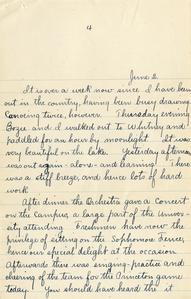 4
June 2.
It is over a week now since I have been
out in the country, having been busy drawing.
Canoeing twice, however. Thursday evening
Bozie and I walked out to Whitney and
paddled for an hour by moonlight. It was
very beautiful on the lake. Yesterday afternoon
was out again - alone - and learning! There
was a stiff breeze, and hence lots of hard
work.
After dinner the Orchestra gave a Concert
on the Campus a large part of the Univer-
sity attending. Freshmen have now the
privilege of sitting on the Sophomore Fence,
hence our special delight at the occasion.
Afterwards there was singing-practice and
cheering of the team for the Princeton game
today. You should have heard the it